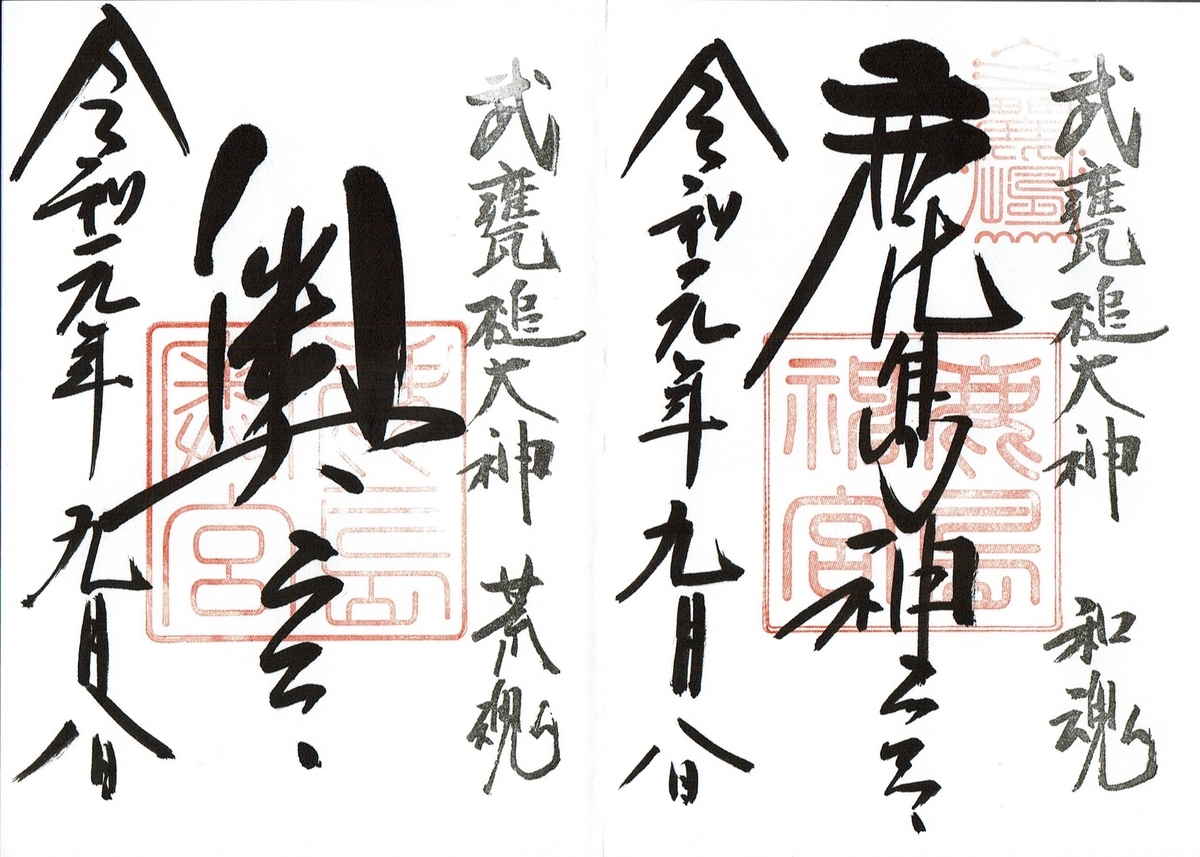 武甕槌大神 和魂
鹿島神宮
令和元年九月八日
武甕槌大神 荒魂
奥宮
令和元年九月八日
鹿島
神宮
鹿島
奥宮